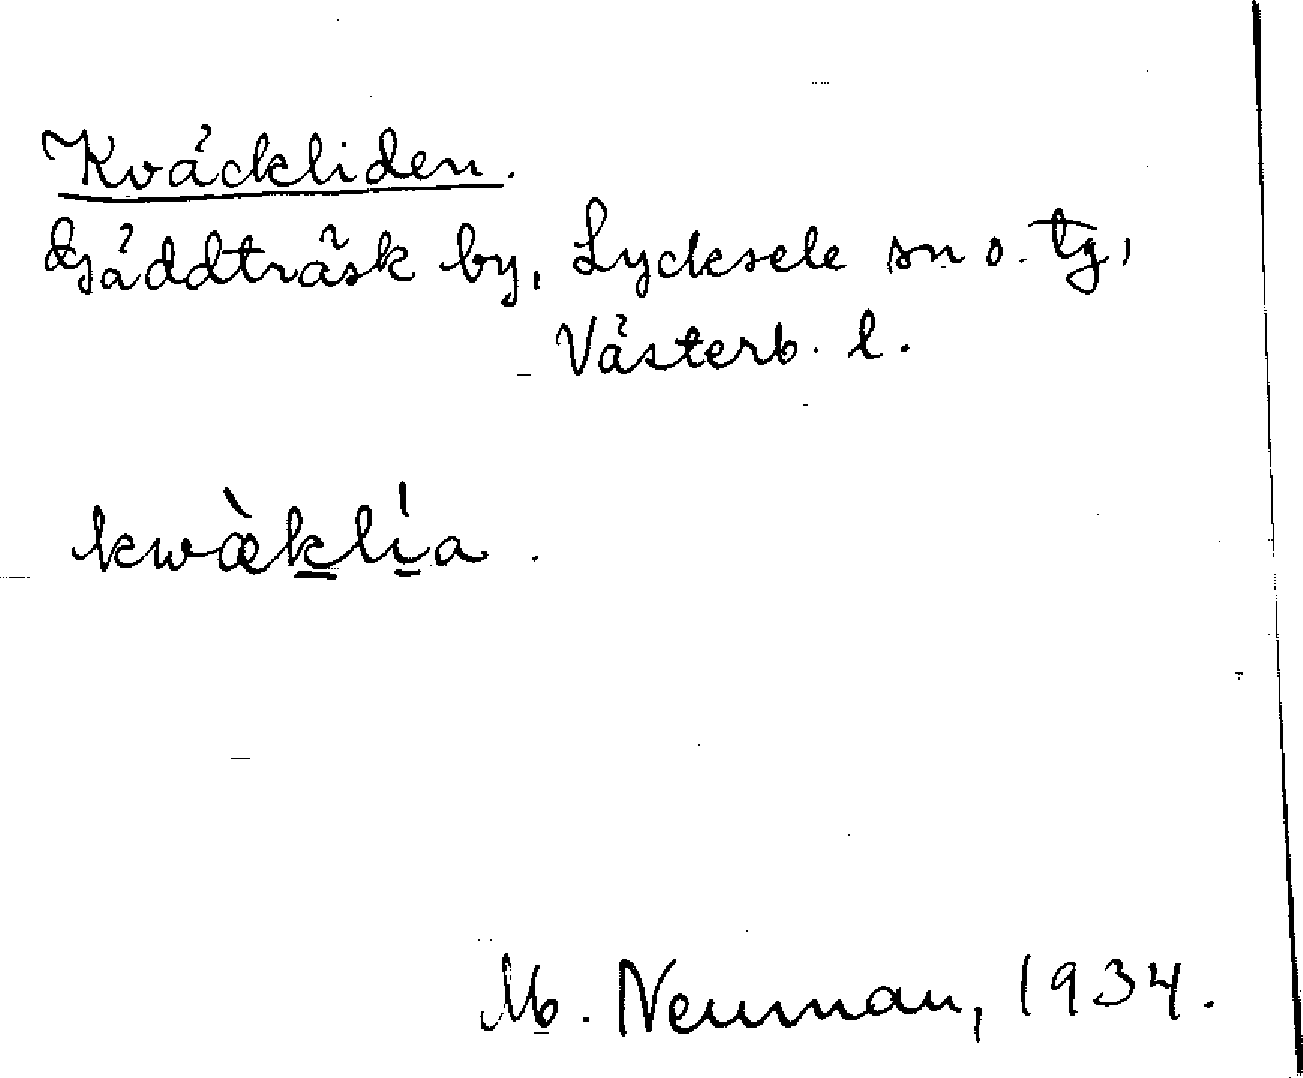 Kväckliden.
Gäddträsk by, Lycksele sn o. tg,
Västerb. l.
kwæ̀k̲lí̱a.
M. Neuman, 1934.